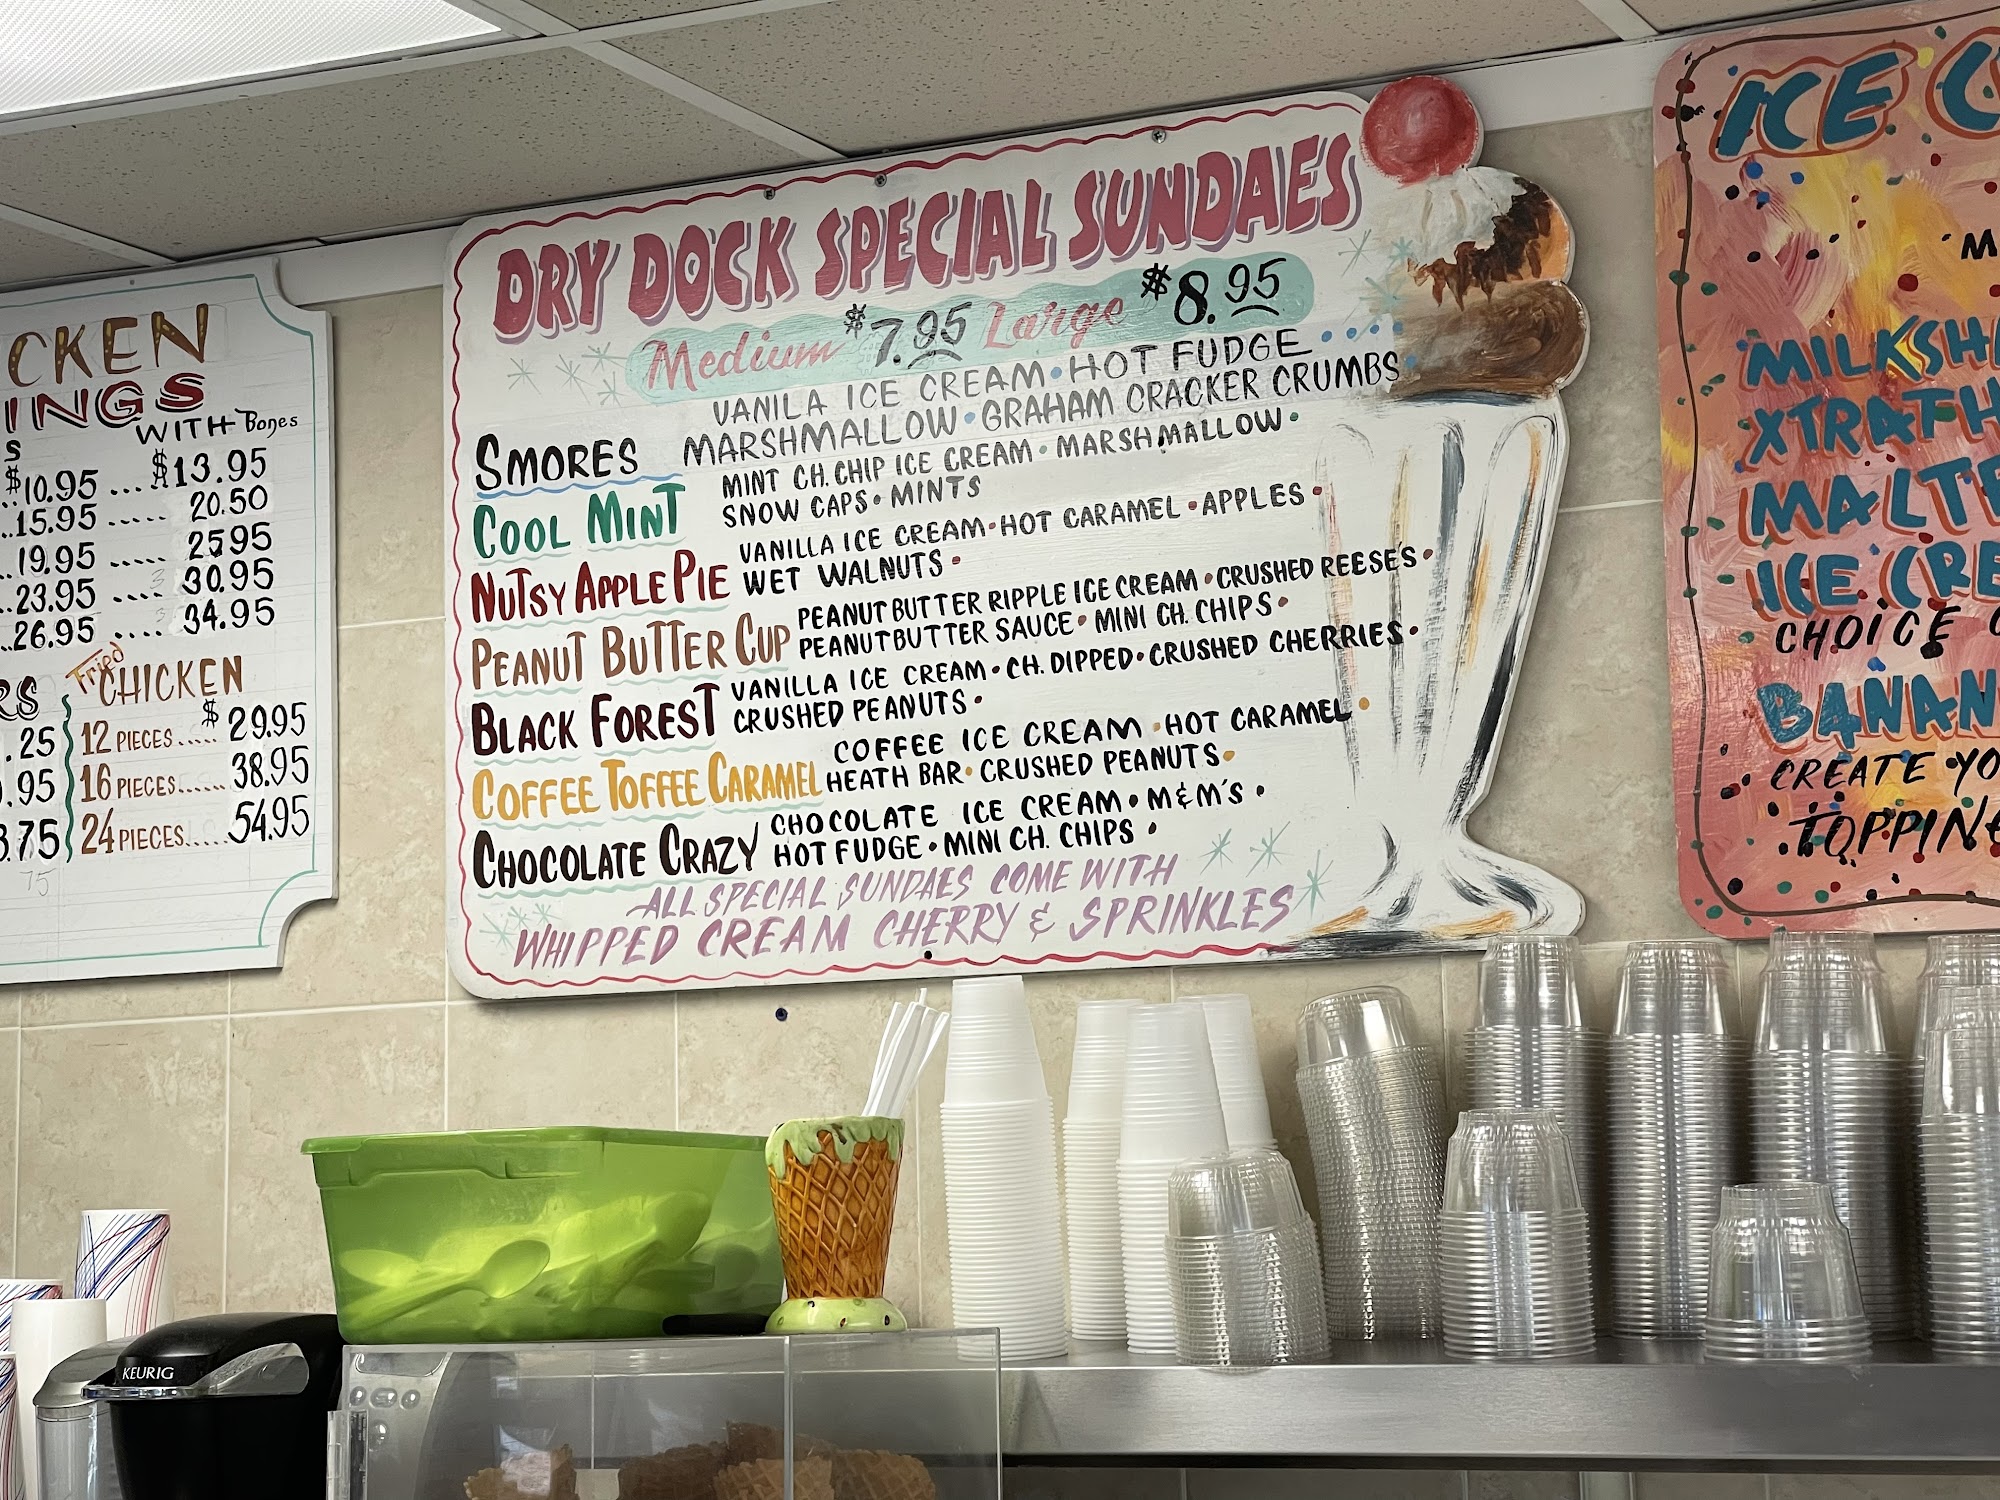 CKEN
INGS
WITH Bones
S
$10.95 ... $13.95
..15.95 ..... 20.50
..19.95 ..... 25.95
..23.95 .... 30.95
..26.95 .... 34.95
Fried
CHICKEN
RS
.25
.95
3.75
75
12 PIECES..... $29.95
16 PIECES...... 38.95
24 PIECES..... 54.95
DRY DOCK SPECIAL SUNDAES
Medium $7.95 Large $8.95
VANILA ICE CREAM • HOT FUDGE ....
SMORES MARSHMALLOW • GRAHAM CRACKER CRUMBS
MINT CH. CHIP ICE CREAM • MARSHMALLOW •
COOL MINT SNOW CAPS • MINTS
VANILLA ICE CREAM • HOT CARAMEL • APPLES •
NUTSY APPLE PIE WET WALNUTS •
PEANUT BUTTER RIPPLE ICE CREAM • CRUSHED REESE'S •
PEANUT BUTTER CUP PEANUTBUTTER SAUCE • MINI CH. CHIPS •
VANILLA ICE CREAM • CH. DIPPED • CRUSHED CHERRIES •
BLACK FOREST CRUSHED PEANUTS •
COFFEE ICE CREAM • HOT CARAMEL •
COFFEE TOFFEE CARAMEL HEATH BAR • CRUSHED PEANUTS •
CHOCOLATE ICE CREAM • M&M'S •
CHOCOLATE CRAZY HOT FUDGE • MINI CH. CHIPS •
ALL SPECIAL SUNDAES COME WITH
WHIPPED CREAM CHERRY & SPRINKLES
ICE C
M
MILKSH
XTRATH
MALTE
ICE CRE
CHOICE
BANAN
CREATE YO
TOPPIN
KEURIG